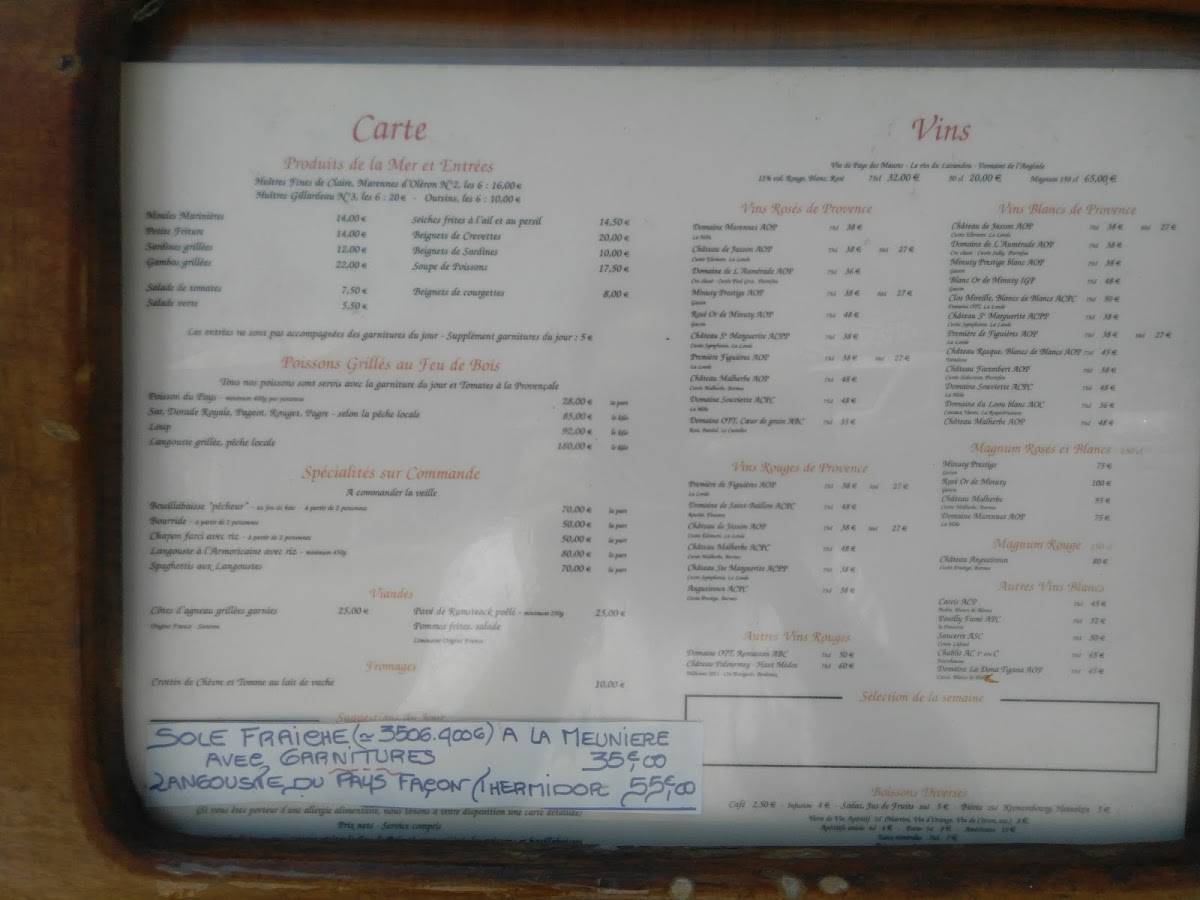 Carte
Produits de la Mer et Entrées
Huîtres Fines de Claire, Marennes d'Oléron N°2, les 6 : 16,00 €
Huîtres Gillardeau N°3, les 6 : 20 € - Oursins, les 6 : 10,00 €
Moules Marinières 14,00 €
Petite Friture 14,00 €
Sardines grillées 12,00 €
Gambas grillées 22,00 €
Salade de tomates 7,50 €
Salade verte 5,50 €
Seiches frites à l'ail et au persil 14,50 €
Beignets de Crevettes 20,00 €
Beignets de Sardines 10,00 €
Soupe de Poissons 17,50 €
Beignets de courgettes 8,00 €
Les entrées ne sont pas accompagnées des garnitures du jour - Supplément garnitures du jour : 5 €
Poissons Grillés au Feu de Bois
Tous nos poissons sont servis avec la garniture du jour et Tomates à la Provençale
Poisson du Pays - minimum 400g par personne 28,00 € la part
Sar, Dorade Royale, Pageot, Rouget, Pagre - selon la pêche locale 85,00 € le kilo
Loup 92,00 € le kilo
Langouste grillée, pêche locale 180,00 € le kilo
Spécialités sur Commande
A commander la veille
Bouillabaisse "pêcheur" - au feu de bois - à partir de 2 personnes 70,00 € la part
Bourride - à partir de 2 personnes 50,00 € la part
Chapon farci avec riz - à partir de 2 personnes 50,00 € la part
Langouste à l'Armoricaine avec riz - minimum 450g 80,00 € la part
Spaghettis aux Langoustes 70,00 € la part
Viandes
Côtes d'agneau grillées garnies 25,00 €
Origine France - Sisteron
Pavé de Rumsteack poêlé - minimum 250g 25,00 €
Pommes frites, salade
Limousine Origine France
Fromages
Crottin de Chèvre et Tomme au lait de vache 10,00 €
Suggestions du Jour
SOLE FRAICHE (≃ 350G.400G) A LA MEUNIERE
AVEC GARNITURES 35€,00
LANGOUSTE DU PAYS FAÇON THERMIDOR 55€,00
(Si vous êtes porteur d'une allergie alimentaire, nous tenons à votre disposition une carte détaillée)
Prix nets - Service compris
Vins
Vin de Pays des Maures - Le vin du Lavandou - Domaine de l'Anglade
12% vol. Rouge, Blanc, Rosé 75cl 32,00 € 50 cl 20,00 € Magnum 150 cl 65,00 €
Vins Rosés de Provence
Domaine Murennes AOP 75cl 38 €
La Môle
Château de Jasson AOP 75cl 38 € 50cl 27 €
Cuvée Eléonore, La Londe
Domaine de L'Auméràde AOP 75cl 36 €
Minuty Prestige AOP 75cl 38 € 50cl 27 €
Gassin
Rosé Or de Minuty AOP 75cl 48 €
Gassin
Château Ste Marguerite ACPP 75cl 38 €
Cuvée Symphonie, La Londe
Première Figuières AOP 75cl 38 € 50cl 27 €
La Londe
Château Malherbe AOP 75cl 48 €
Cuvée Malherbe, Bormes
Domaine Souviette ACPC 75cl 48 €
La Môle
Domaine OTT, Cœur de grain ABC 75cl 55 €
Vins Rouges de Provence
Première de Figuières AOP 75cl 38 € 50cl 27 €
La Londe
Domaine de Saint-Baillon ACPC 75cl 48 €
Château de Jasson AOP 75cl 38 € 50cl 27 €
Cuvée Eléonore, La Londe
Château Malherbe ACPC 75cl 48 €
Cuvée Malherbe, Bormes
Château Ste Marguerite ACPP 75cl 38 €
Cuvée Symphonie, La Londe
Angueiroun ACPC 75cl 38 €
Cuvée Prestige, Bormes
Autres Vins Rouges
Domaine OTT, Romassan ABC 75cl 50 €
Château Peloumey - Haut Médoc 75cl 60 €
Vins Blancs de Provence
Château de Jasson AOP 75cl 38 € 50cl 27 €
Cuvée Eléonore, La Londe
Domaine de L'Auméràde AOP 75cl 38 €
Minuty Prestige blanc AOP 75cl 38 €
Gassin
Blanc Or de Minuty IGP 75cl 48 €
Gassin
Clos Mireille, Blancs de Blancs ACPC 75cl 50 €
Domaine OTT, La Londe
Château Ste Marguerite ACPP 75cl 38 €
Cuvée Symphonie, La Londe
Première de Figuières AOP 75cl 38 € 50cl 27 €
La Londe
Château Rasque, Blancs de Blancs AOP 75cl 45 €
Château Farembert AOP 75cl 38 €
Domaine Souviette ACPC 75cl 48 €
La Môle
Domaine du Loou blanc AOC 75cl 36 €
Château Malherbe AOP 75cl 48 €
Magnum Rosés et Blancs 150 cl
Minuty Prestige 75 €
Gassin
Rosé Or de Minuty 100 €
Gassin
Château Malherbe 95 €
Cuvée Malherbe, Bormes
Domaine Murennes AOP 75 €
La Môle
Magnum Rouge 150 cl
Château Angueiroun 80 €
Cuvée Prestige, Bormes
Autres Vins Blancs
Cassis ACP 75cl 45 €
Pouilly Fumé APC 75cl 52 €
Sancerre ASC 75cl 50 €
Chablis AC 1er cru C 75cl 65 €
Domaine La Dona Tigana AOP 75cl 45 €
Sélection de la semaine
Boissons Diverses
Café 2,50 € - Infusion 4 € - Sodas, Jus de Fruits 5 € - Bières 25cl Kronenbourg, Heineken 5 €